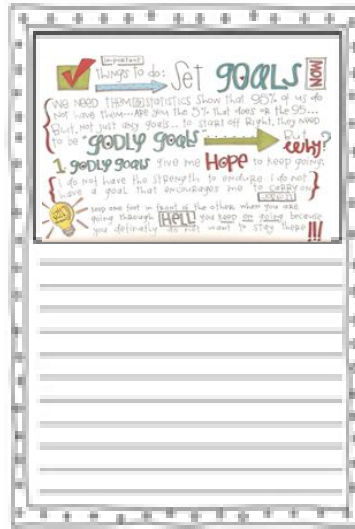 Important
Things to do: Set GOALS NOW
WE NEED THEM statistics show that 95% of us do
not have them---Are you the 5% that does or the 95...
But, not just any goals... to start off Right, they NEED
to be "GODLY GOALS" ........ But WHY?
1 GODLY GOALS give me HOPE to keep going.
I do not have the strength to endure. I do not
have a goal that encourages me to CARRY ON
keep one foot in front of the other when you are
going through HELL! you keep on going because
you definatly do not want to stay there !!!